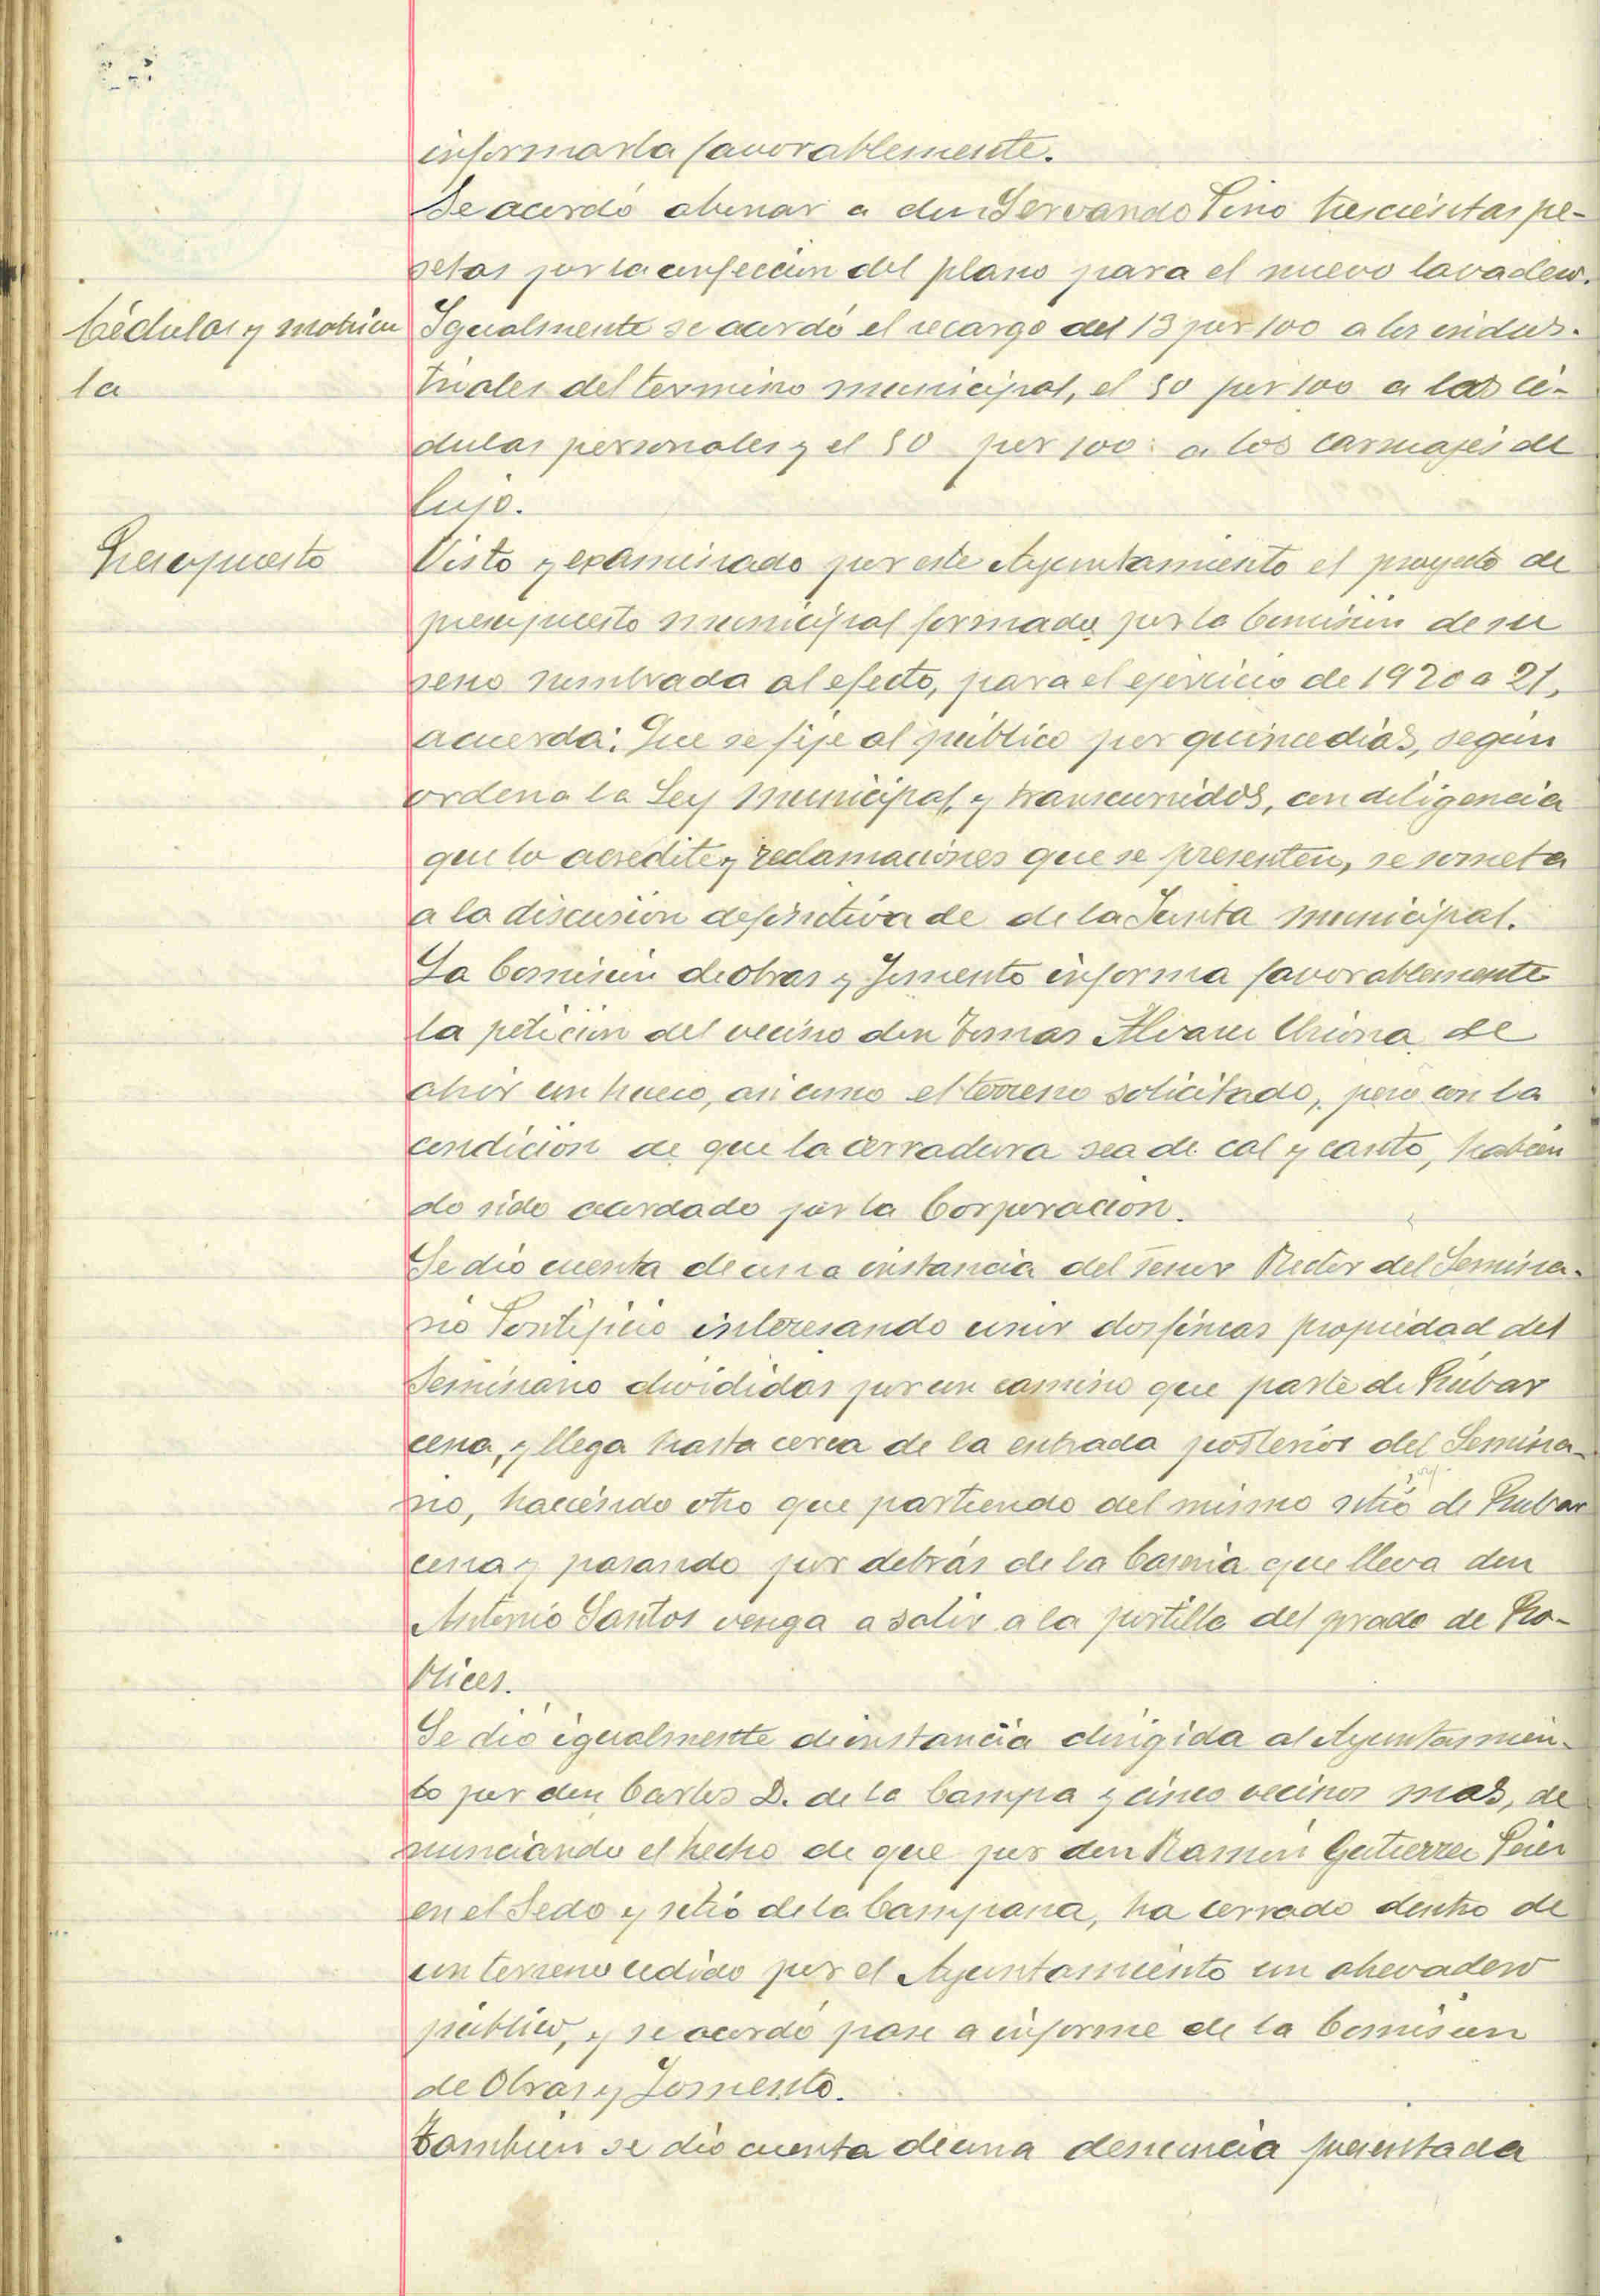 informarla favorablemente.
Se acordó abonar a don Servando Pino trescientas pe-
setas por la confección del plano para el nuevo lavadero.
Cédulas y matricu
Igualmente se acordó el recargo del 13 por 100 a los indus-
la
triales del termino municipal, el 50 por 100 a las cé-
dulas personales y el 50 por 100 a los carruajes de
lujo.
Presupuesto
Visto y examinado por este Ayuntamiento el proyecto de
presupuesto municipal formado por la Comisión de su
seno nombrada al efecto, para el ejercicio de 1920 a 21,
acuerda: Que se fije al público por quince dias, según
ordena la Ley Municipal, y transcurridos, con diligencia
que lo acredite y reclamaciones que se presenten, se someta
a la discusión definitiva de de la Junta municipal.
La Comisión de obras y Fomento informa favorablemente
la petición del vecino don Tomas Alvarez de
abrir un hueco, asi como el terreno solicitado, pero con la
condición de que la cerradura sea de cal y canto, habien
do sido acordado por la Corporación.
Se dió cuenta de una instancia del señor Rector del Semina-
rio Pontificio interesando unir dos fincas propiedad del
Seminario divididas por un camino que parte de Rubar
cena, y llega hasta cerca de la entrada posterior del Semina-
rio, haciendo otro que partiendo del mismo sitio de Rubar
cena y pasando por detrás de la Caseria que lleva don
Antonio Santos venga a salir a la portilla del prado de

Se dió igualmente de instancia dirigida al Ayuntamien-
to por don Carlos D. de la Campa y cinco vecinos mas, de
nunciando el hecho de que por don Ramón Gutierrez
en el Sedo y sitio de la Campana, ha cerrado dentro de
un terreno cedido por el Ayuntamiento un abevadero
público, y se acordó pase a informe de la Comisión
de Obras y Fomento.
Tambien se dió cuenta de una denuncia presentada